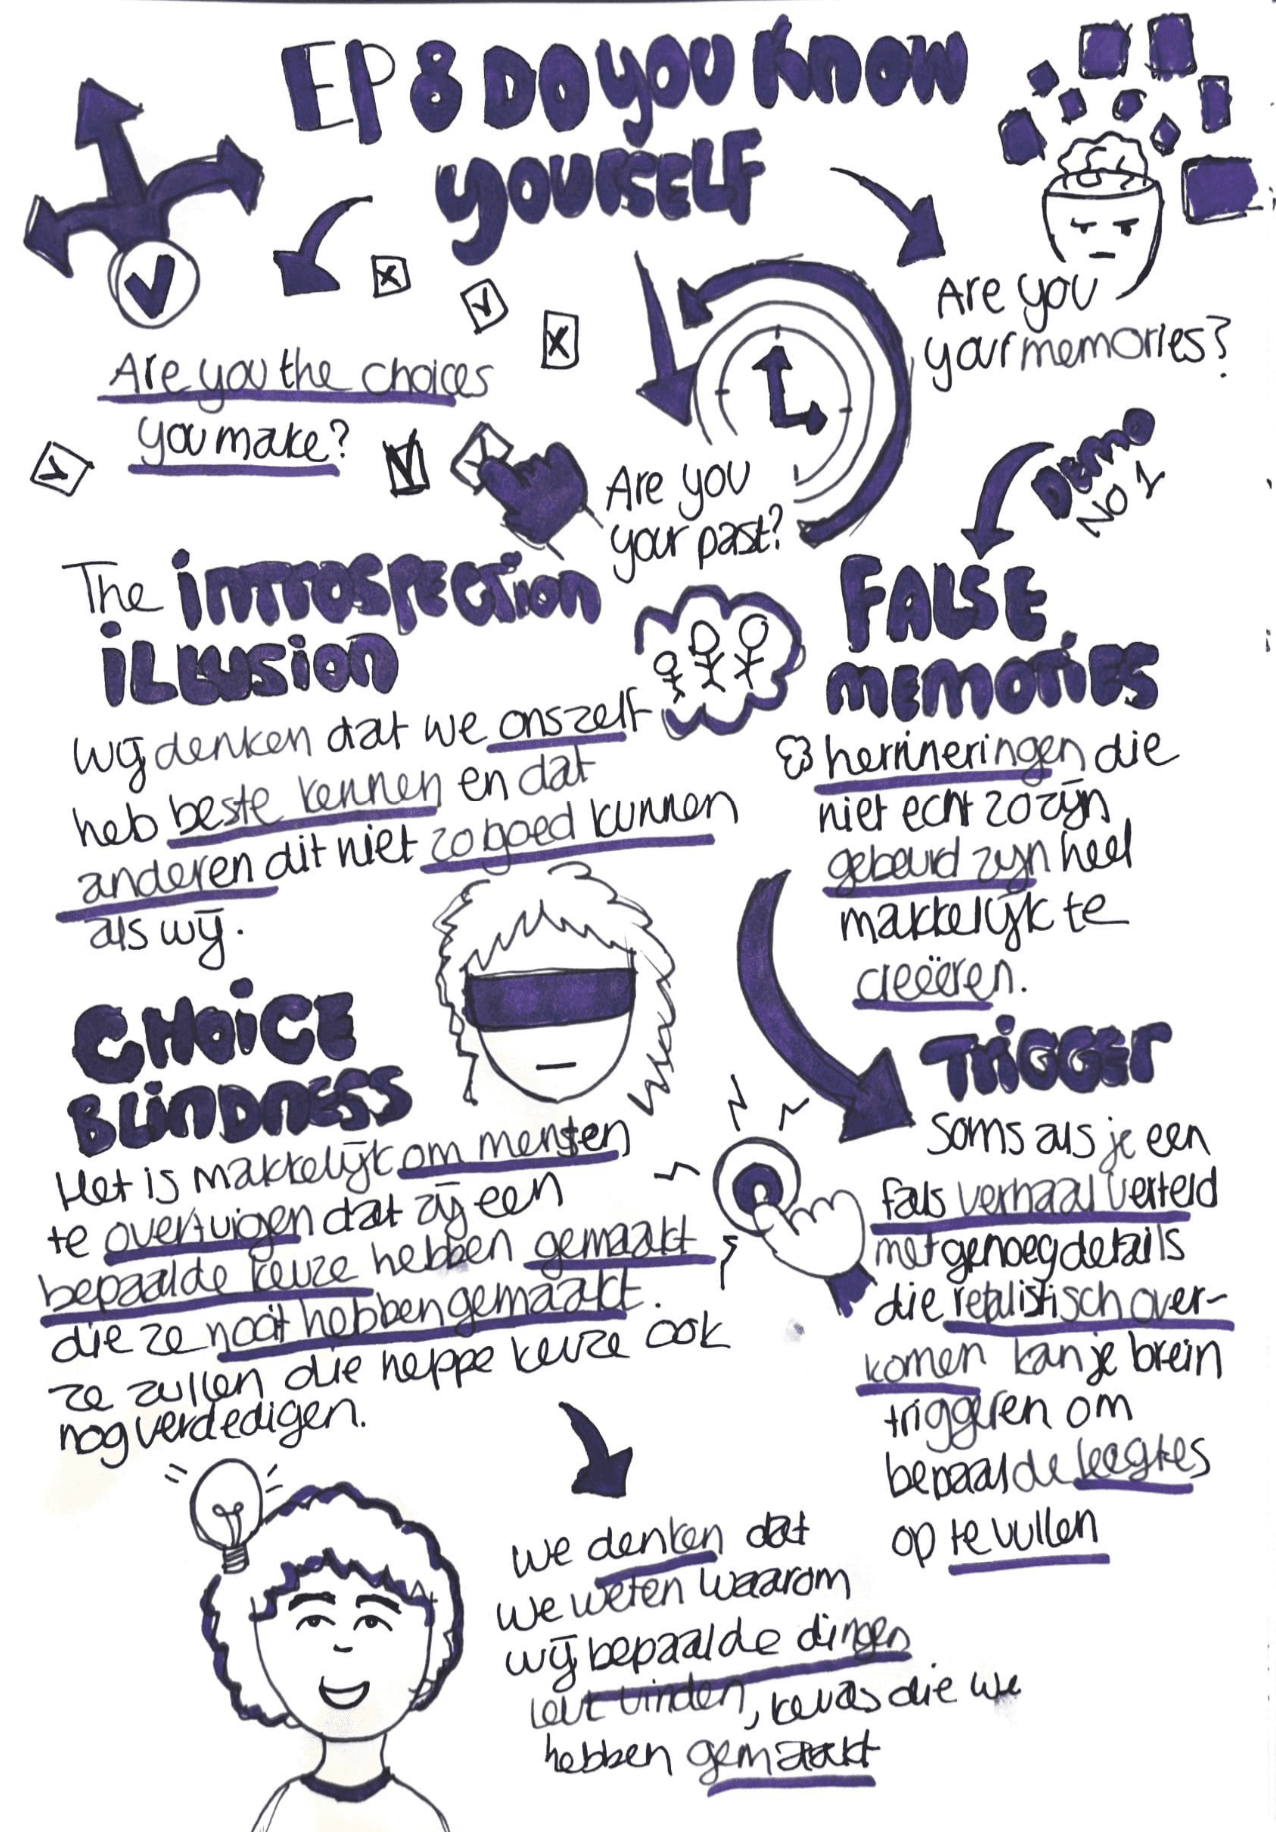 EP 8 DO YOU KNOW
YOURSELF
Are you the choices
you make?
Are you
your past?
Are you
your memories?
Demo
No 1
The introspection
illusion
wij denken dat we onszelf
heb beste kennen en dat
anderen dit niet zo goed kunnen
als wij.
CHOICE
BLINDNESS
Het is makkelijk om mensen
te overtuigen dat zij een
bepaalde keuze hebben gemaakt
die ze nooit hebben gemaakt.
ze zullen die neppe keuze ook
nog verdedigen.
we denken dat
we weten waarom
wij bepaalde dingen
leuk vinden, keuzes die we
hebben gemaakt
FALSE
MEMORIES
herrineringen die
niet echt zo zijn
gebeurd zijn heel
makkelijk te
creeëren.
TRIGGER
Soms als je een
fals verhaal verteld
met genoeg details
die realistisch over-
komen kan je brein
triggeren om
bepaalde leegtes
op te vullen